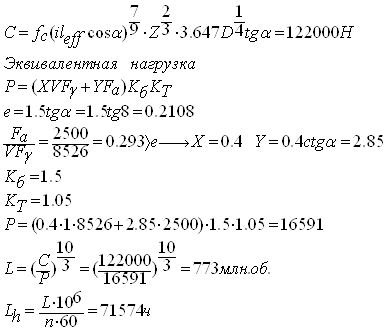 C = f_c(il_eff cosα)^(7/9)·Z^(2/3)·3.647D^(1/4)tgα = 122000H
Эквивалентная нагрузка
P = (XVFγ+YFa)KбKT
e = 1.5tgα = 1.5tg8 = 0.2108
Fa/VFγ = 2500/8526 = 0.293⟩e⟶X = 0.4 Y = 0.4ctgα = 2.85
Kб = 1.5
KT = 1.05
P = (0.4·1·8526+2.85·2500)·1.5·1.05 = 16591
L = (C/P)^(10/3) = (122000/16591)^(10/3) = 773млн.об.
Lh = L·10^6/n·60 = 71574ч